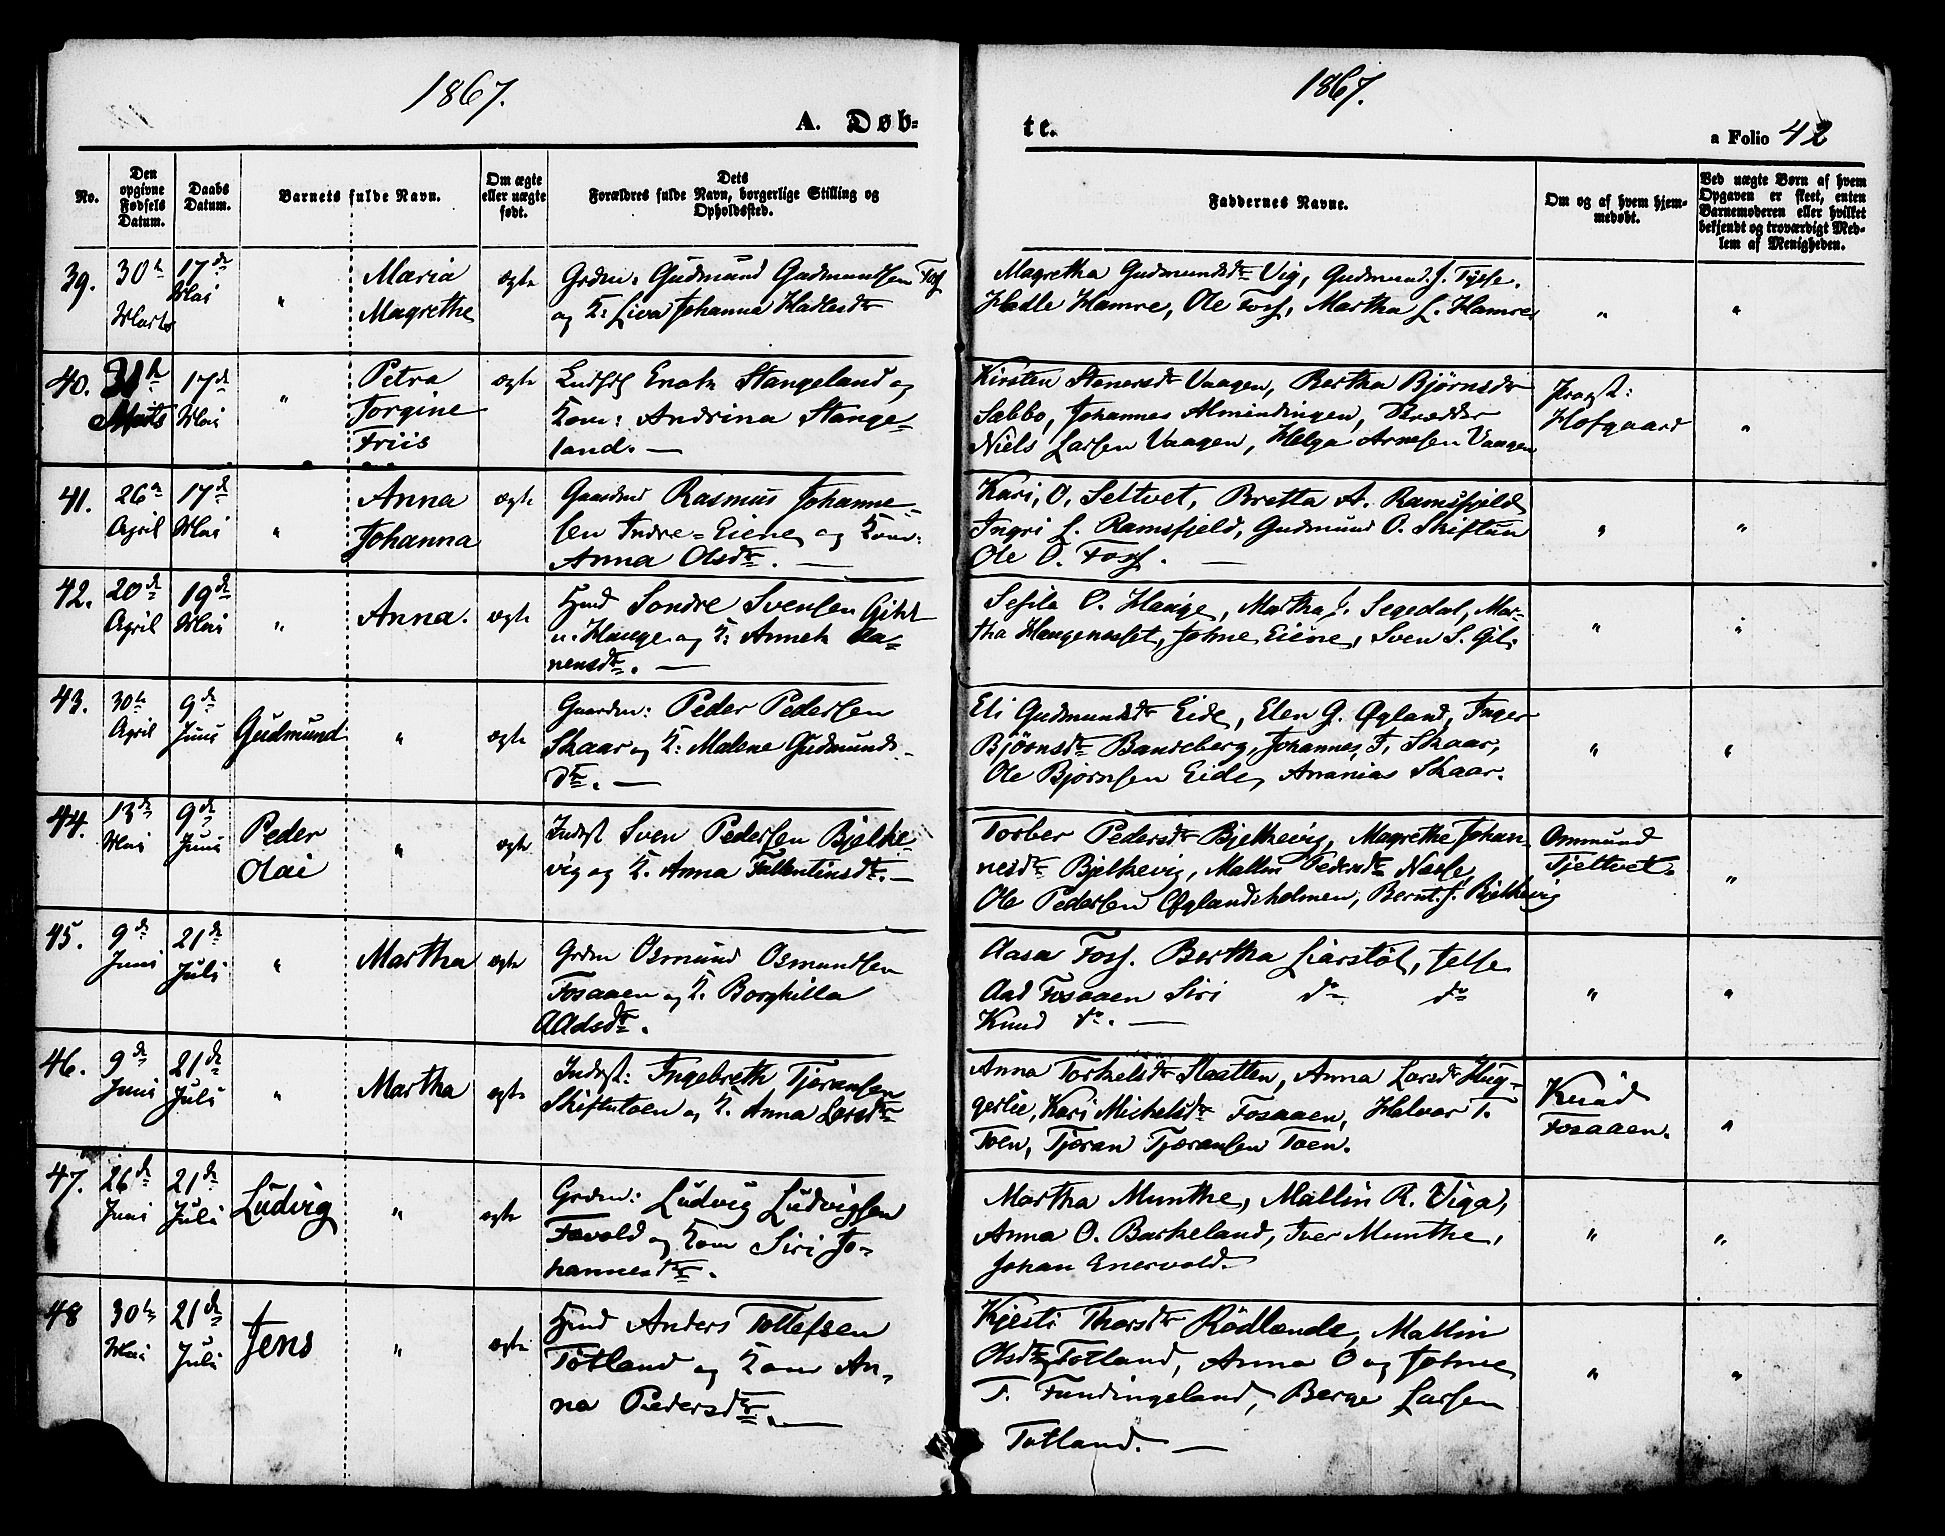 1867.
1867.
A. Døb-
te.
a Folio 42
No.
Den opgivne Fødsels Datum.
Daabs Datum.
Barnets fulde Navn.
Om ægte eller uægte født.
Dets
Forældres fulde Navn, borgerlige Stilling og
Opholdssted.
Faddernes Navne.
Om og af hvem hjem-
medøbt.
Ved uægte Børn af hvem
Opgaven er skeet, enten
Barnemoderen eller hvilket
bekjendt og troværdigt Med-
lem af Menigheden.
39. 30te Marts 17de Mai " Maria Magrethe ægte
Grdm: Gudmund Gudmundsen Foss
og K: Liva Johanna Hadlesdtr
Magretha Gudmundsdtr Vig, Gudmund J. Tysse.
Hadle Hamre, Ole Foss, Martha L. Hamre
" "
40. 31te Marts 17de Mai " Petra Jorgine Friis ægte
Stangeland og
Kone: Andrina Stange-
land. —
Kirsten Vaagen, Bertha Bjørnsdtr
Sabbo, Johannes Almindingen,
Niels Larsen Vaagen, Helga Arnesen Vaagen
Provst:
Hofgaard
"
41. 26de April 17de Mai " Anna Johanna ægte
Gaardmd Rasmus Johanne-
sen Indre-Eiene og Kone:
Anna Olsdtr. —
Kari, O. Seltvet, Bretta A. Ramsfjeld
Ingri L. Ramsfjeld, Gudmund O. Skiftun
Ole O. Foss. —
" "
42. 20de April 19de Mai " Anna. ægte
Hmd Søndre Svensen
u. Hauge og K: Anneh Aa-
nensdtr. —
Sefile O. Hauge, Martha J. Segedal, Mar-
tha Haugenæsset, Johne Eiene, Sven S. Gil.
" "
43. 30te April 9de Juni Gudmund " ægte
Gaardm: Peder Pedersen
Skaar og K: Malene Gudmunds-
dtr. —
Eli Gudmundsdtr Eide, Elen G. Øgland, Inger
Bjørnsdtr Bandeberg, Johannes T. Skaar,
Ole Bjørnsen Eide, Ananias Skaar.
" "
44. 13de Mai 9de Juni Peder Olai " ægte
Indst Sven Pedersen Bjelke-
vig og K. Anna Fallentinsdtr. —
Torber Pedersdtr Bjelkevig, Magrethe Johan
nesdtr Bjelkevig, Mallin Pedersdtr Næsse,
Ole Pedersen Øglandsholmen, Bernt. J. Bjelkevig
Ommund
Tjeltvet.
"
45. 9de Juni 21de Juli " Martha ægte
Grdm Osmund Osmundsen
Fosaaen og K. Borghilla
AAdsdtr.
Aasa Foss. Bertha Liarstøl,
Aad Fosaaen Siri do do
Knud do. —
" "
46. 9de Juni 21de Juli " Martha ægte
Indst: Ingebreth Tjøransen
Skiftutoen og K. Anna Larsdtr
Anna Torkelsdtr Slaatten, Anna Larsdtr Hug-
gerlie, Kari Michelsdtr Fosaaen, Halvor T.
Toen, Tjøran Tjøransen Toen.
Knud
Fosaaen.
"
47. 26de Juni 21de Juli Ludvig " ægte
Grdm: Ludvig Ludvigsen
Fævold og Kone Siri Jo-
hannesdtr.
Martha Munthe, Mallin R. Viga,
Anna O. Barkeland, Iver Munthe,
Johan Enervold.
" "
48 30te Mai 21de Juli Jens " ægte
Hmd Anders Tollefsen
Tøtland og Kone An-
na Pedersdtr. —
Kjesti Thorsdtr Rødlende, Mallin
Olsdtr Totland, Anna O og Johne
T. Fundingsland, Berge Larsen
Totland. —
" "